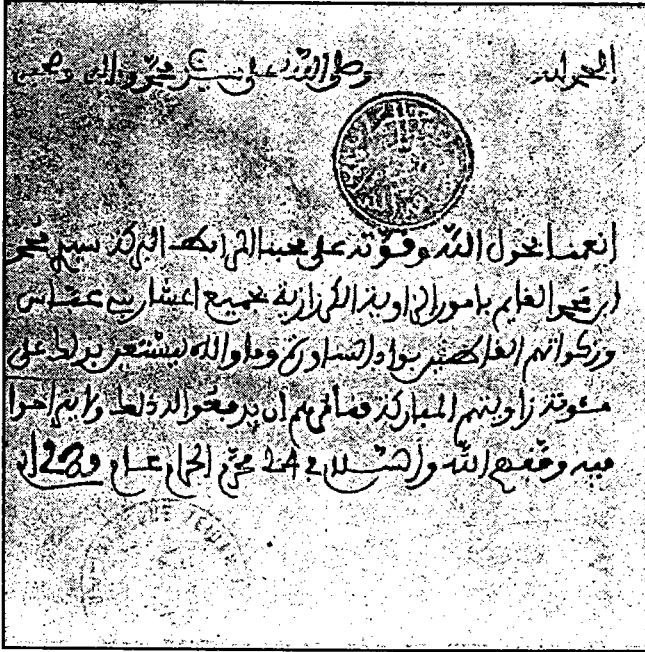 الحمد لله وصلى الله على سيدنا محمد وآله وصحبه
أنعمنا بحول الله وقوته على محبنا المرابط البركة سيدي محمد
ابن محمد القايم بامور الزاوية الكرزازية بجميع اعشار بني عباس
وزكواتهم القاطنين بواد الساورة وما والاه ليستعين بذلك على
مئونة زاويتهم المباركة فنأمرهم أن يدفعوا له ذلك ولا يتراخوا
فيه وفقهم الله والسلام في محرم الحرام عام